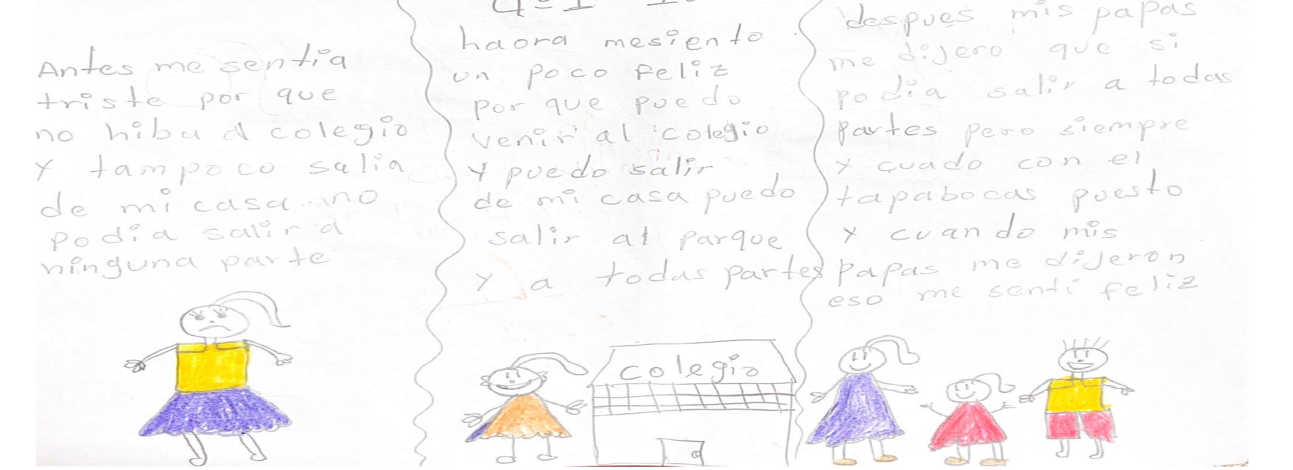 Antes me sentia
triste por que
no hiba al colegio
y tampoco salia
de mi casa no
podia salir a
ninguna parte
haora mesiento
un poco feliz
por que puedo
venir al colegio
y puedo salir
de mi casa puedo
salir al parque
y a todas partes
despues mis papas
me dijero que si
podia salir a todas
partes pero siempre
y cuado con el
tapabocas puesto
y cuando mis
papas me dijeron
eso me senti feliz
colegio